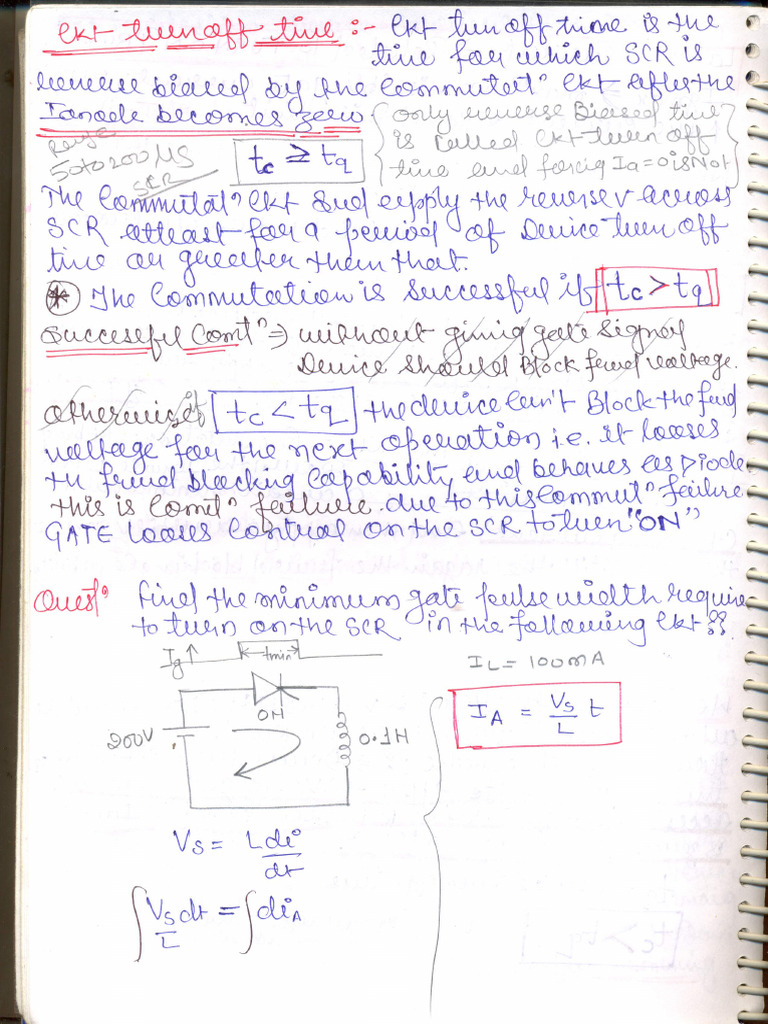 Ckt turn off time :- Ckt turn off time is the
time for which SCR is
reverse biased by the commutatⁿ ckt after the
Ianode becomes zero
only reverse Biased time
is called ckt turn off
time and forcing Ia=0 is Not
Range
50 to 200 μs
SCR
tc ≥ tq
The Commutatⁿ ckt supply the reverse v across
SCR atleast for a period of Device turn off
time or greater than that.
* The Commutation is successful if tc > tq
Successful Comtⁿ ⇒ without giving gate signal
Device should Block frwd voltage.
otherwise if tc < tq the device can't Block the fwd
voltage for the next operation i.e. it looses
th frwd blocking capability and behaves as Diode
this is Comtⁿ failure. due to this commutⁿ failure
GATE looses control on the SCR to turn "ON"
Quesⁿ Find the minimum gate pulse width require
to turn on the SCR in the following ckt ??
Ig ↑ tmin
IL = 100mA
ON
200V
0.1H
IA = Vs/L t
Vs = L di/dt
∫ Vs/L dt = ∫ diA